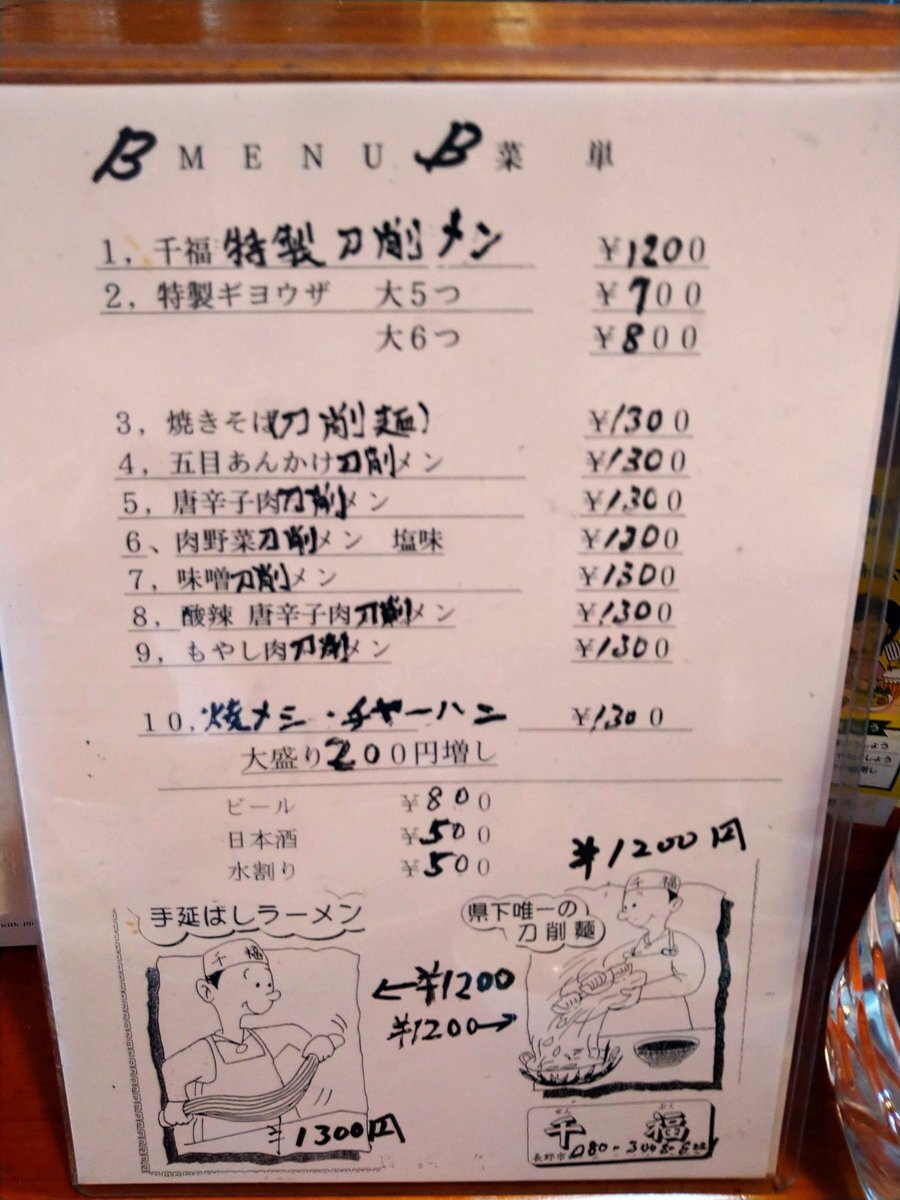 B MENU B 菜 単
1，千福 特製刀削メン ￥1200
2，特製ギヨウザ 大5つ ￥700
大6つ ￥800
3，焼きそば(刀削麺) ￥1300
4，五目あんかけ刀削メン ￥1300
5，唐辛子肉刀削メン ￥1300
6、肉野菜刀削メン 塩味 ￥1300
7，味噌刀削メン ￥1300
8，酸辣 唐辛子肉刀削メン ￥1300
9，もやし肉刀削メン ￥1300
10.焼メシ・チャーハン ￥1300
大盛り200円増し
ビール ￥800
日本酒 ￥500
水割り ￥500
￥1200円
手延ばしラーメン
県下唯一の
刀削麺
千福
千福
←￥1200
￥1200→
1300円
せん ぷく
千福
長野市